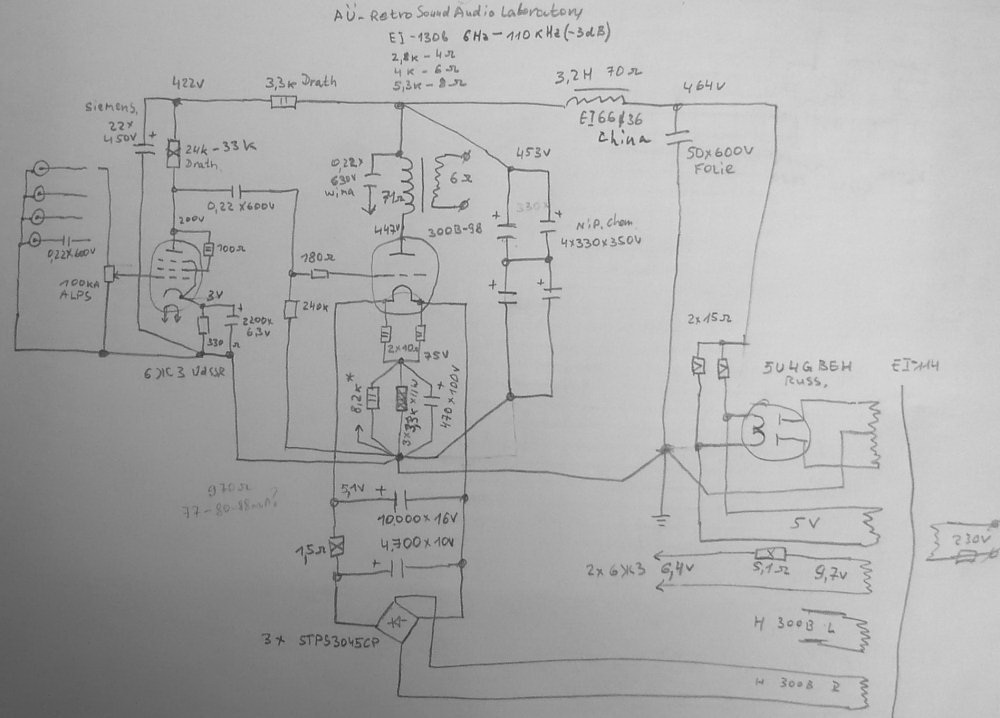 AÜ-Retro Sound Audio Laboratory
EI-130b 6Hz-110KHz(-3dB)
2,8k-4Ω
4k-6Ω
5,3k-8Ω
422V
3,3k Drath
3,2H 70Ω
464V
Siemens,
22x
450V
EI66/36
China
24k-33k
Drath
50x600V
FOLIE
0,22x
630V
Wima
71Ω
6Ω
453V
330x
0,22x600V
200V
447V
300B-98
Nip. Chem
4x330x350V
100Ω
0,22x600V
100KA
ALPS
180Ω
240k
3V
330
Ω
2200x
6,3V
2x10Ω
75V
2x15Ω
6Ж3 Vasse
5U4G BEH
Russ,
EI-114
8,2k*
470x100V
970Ω
77-80-88mA?
5,1V
10,000x16V
4,700x10V
1,5Ω
5V
230V
2x6Ж3
6,4V
5,1Ω
9,7V
H 300B L
3x STPS3045CP
H 300B R